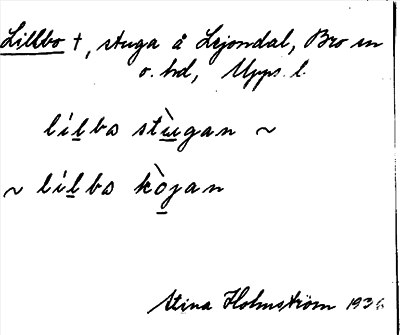 Lillbo †, stuga å Lejondal, Bro sn
o. hd, Upps. l.
lílbo stùgan ~
~ lílbo kòjan
Stina Holmström 1936